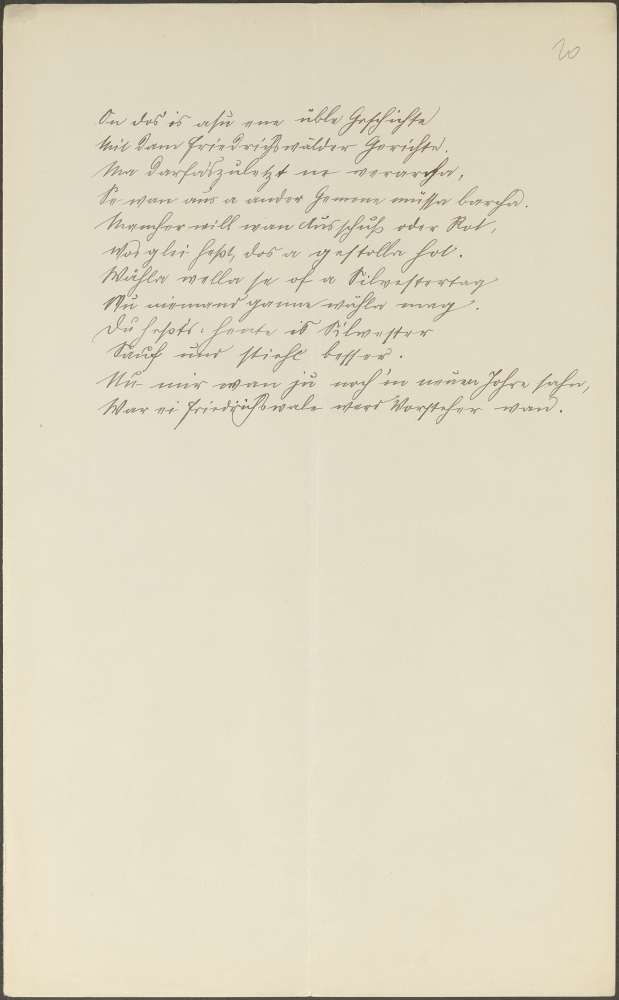 20
On dos is asu ene üble Geschichte
Mit dam Friedrichswälder Gerichte.
Ma darf's zuletzt ne
Se wan aus a ander Gemene müssa
Mancher will wan Ausschuß oder Rot,
wos glei heßt, dos a gestolla hot.
Wähla wella se of a Silvestertag
Wu niemand ganne wähla mag.
Du heßt's: heute is Silvester
Sauf und stiehl besser.
Nu mir wan ju noch'm neuen Johre sahn,
War ei Friedrichswale werd Vorsteher wan.